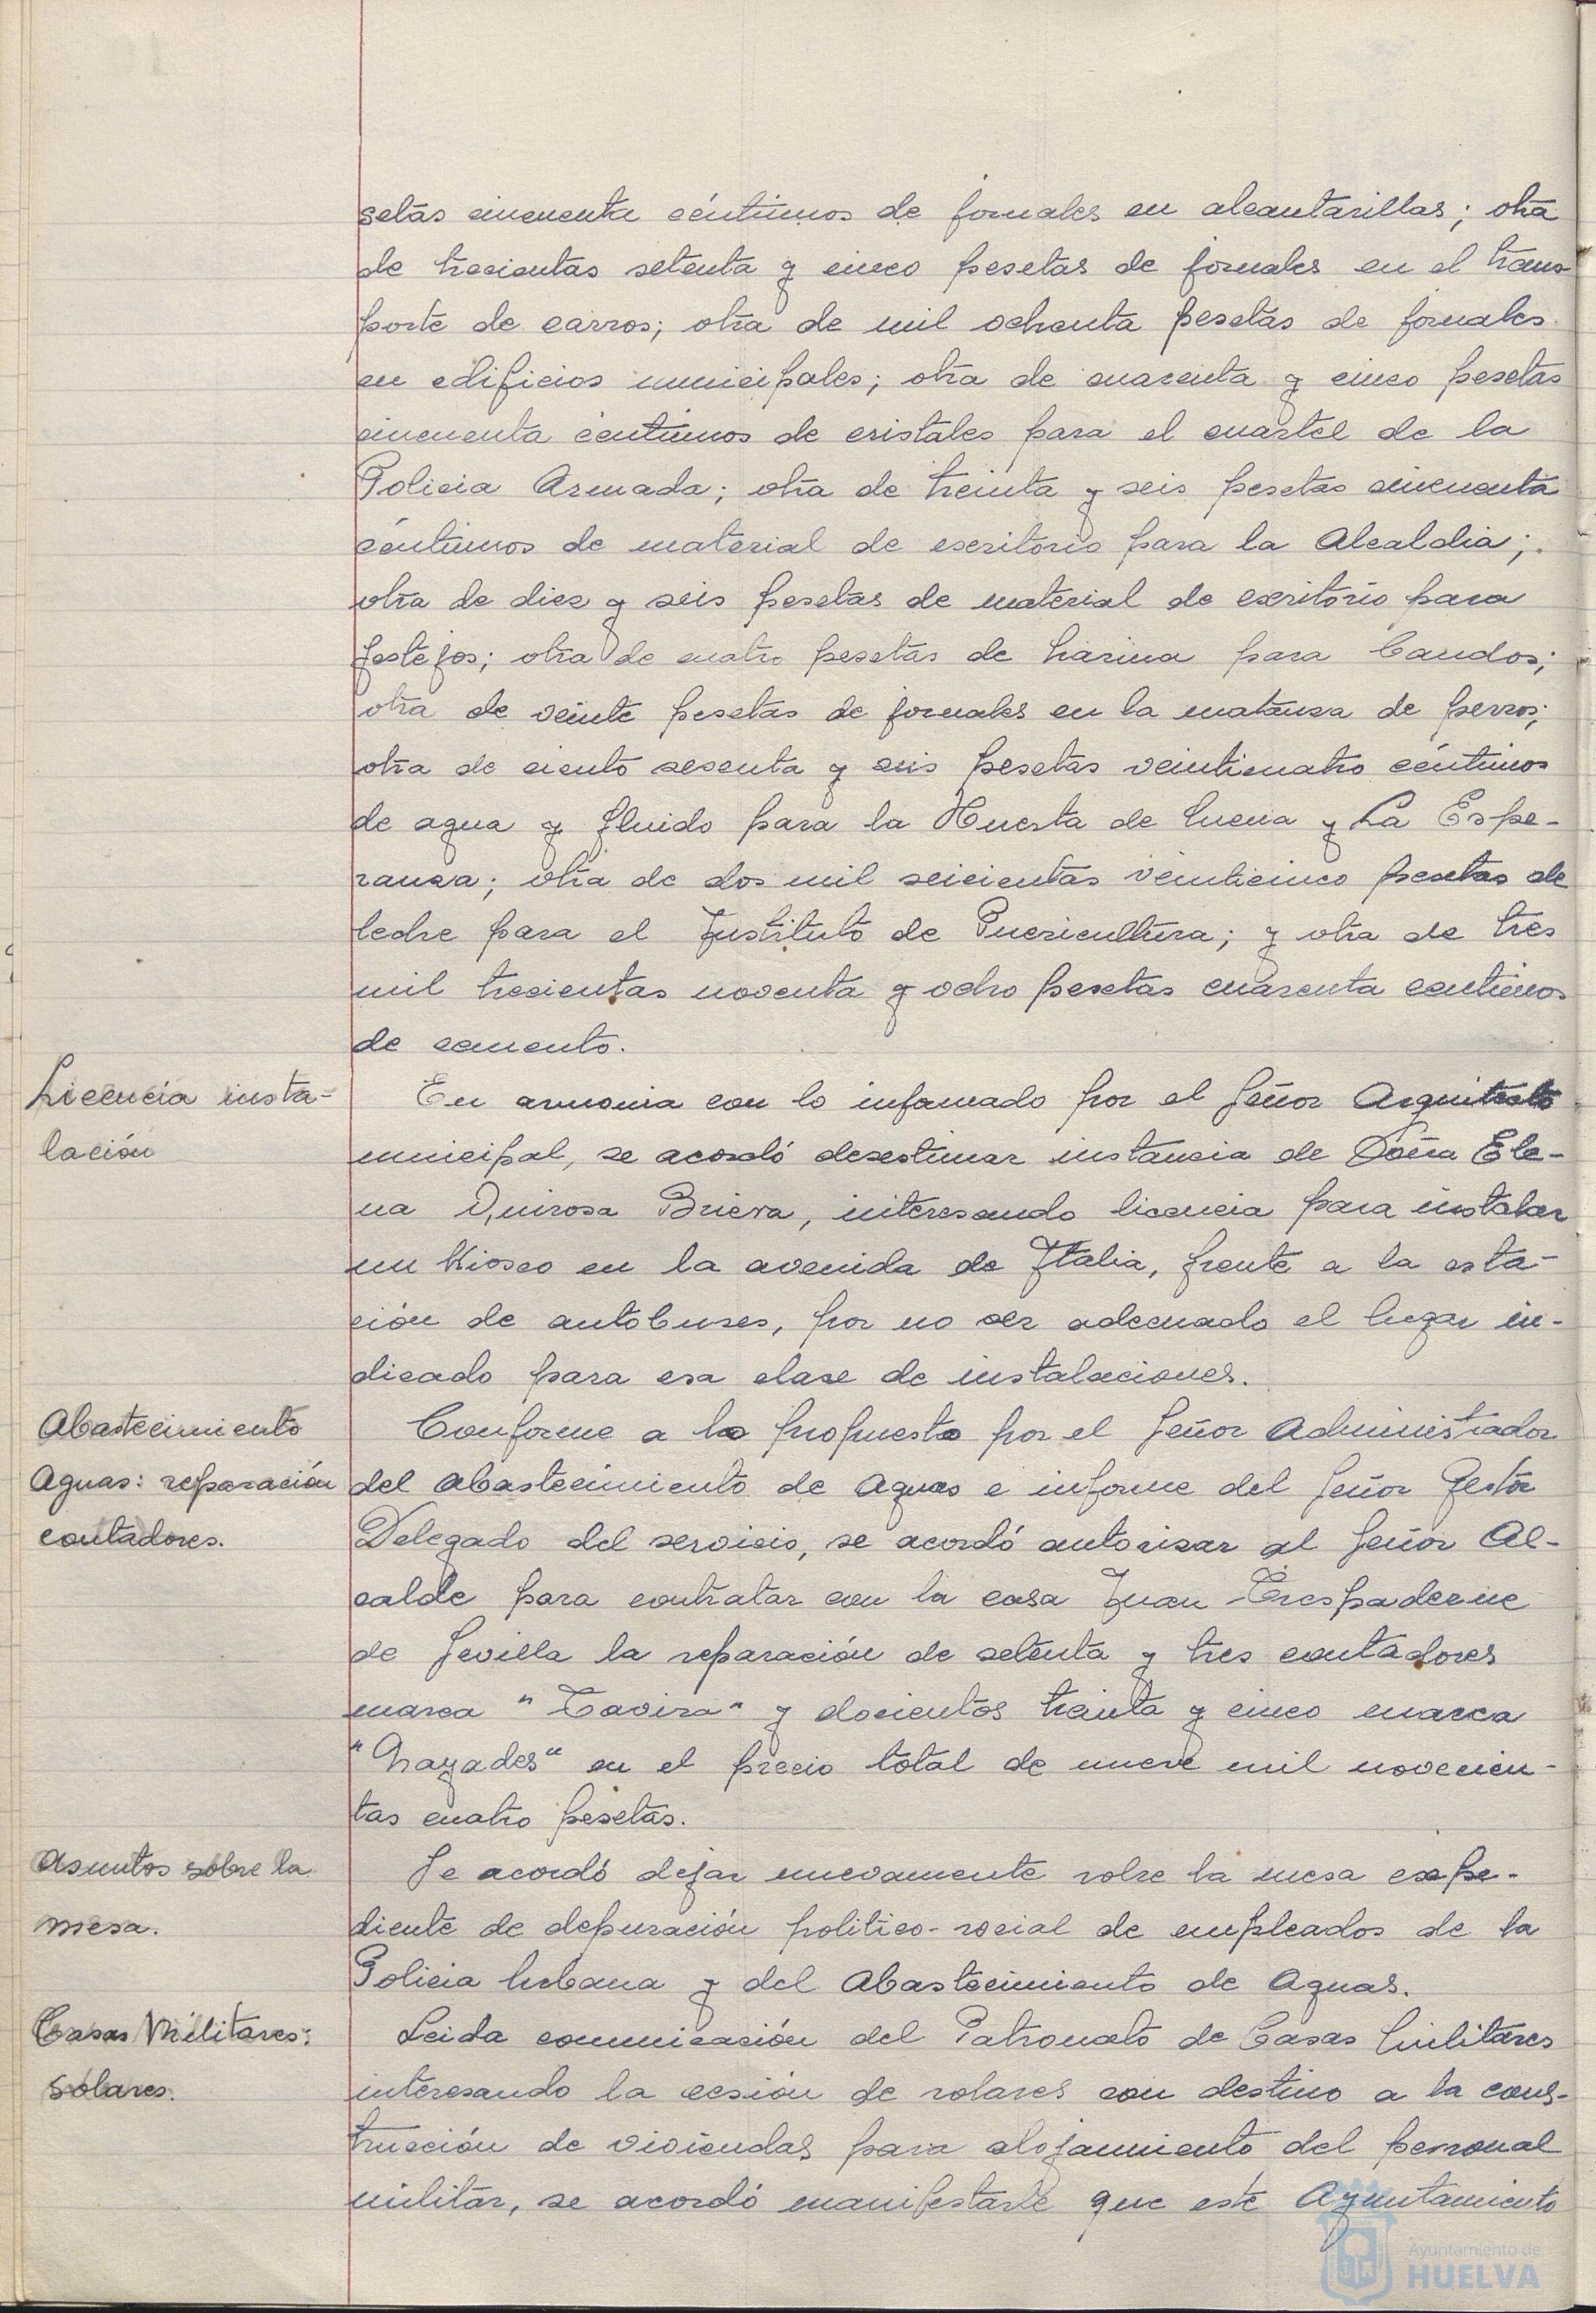 setas cincuenta céntimos de jornales en alcantarillas; otra
de trecientas setenta y cinco pesetas de jornales en el trans-
porte de carros; otra de mil ochenta pesetas de jornales
en edificios municipales; otra de cuarenta y cinco pesetas
cincuenta céntimos de cristales para el cuartel de la
Policia Armada; otra de treinta y seis pesetas cincuenta
céntimos de material de escritorio para la Alcaldia;
otra de diez y seis pesetas de material de escritorio para
festejos; otra de cuatro pesetas de harina para bandos;
otra de veinte pesetas de jornales en la matanza de perros;
otra de ciento sesenta y seis pesetas veinticuatro céntimos
de agua y fluido para la Huerta de Mena y La Espe-
ranza; otra de dos mil seicientas veinticinco pesetas de
leche para el Instituto de Puericultura; y otra de tres
mil trecientas noventa y ocho pesetas cuarenta centimos
de cemento.
Licencia insta-
lación
En armonia con lo informado por el Señor Arquitecto
municipal, se acordó desestimar instancia de Doña Ele-
na Quirosa Brieva, interesando licencia para instalar
un kiosco en la avenida de Italia, frente a la esta-
ción de autobuses, por no ser adecuado el lugar in-
dicado para esa clase de instalaciones.
Abastecimiento
Aguas: reparación
contadores.
Conforme a lo propuesto por el Señor Administrador
del Abastecimiento de Aguas e informe del Señor Gestor
Delegado del servicio, se acordó autorizar al Señor Al-
calde para contratar con la casa Juan Trespaderne
de Sevilla la reparación de setenta y tres contadores
marca "Tavira" y docientos treinta y cinco marca
"Nayades" en el precio total de nueve mil novecien-
tas cuatro pesetas.
Asuntos sobre la
mesa.
Se acordó dejar nuevamente sobre la mesa expe-
diente de depuración politico-social de empleados de la
Policia Urbana y del Abastecimiento de Aguas.
Casas Militares:
solares.
Leida comunicación del Patronato de Casas Militares
interesando la cesión de solares con destino a la cons-
trucción de viviendas para alojamiento del personal
militar, se acordó manifestarle que este Ayuntamiento
Ayuntamiento de
HUELVA